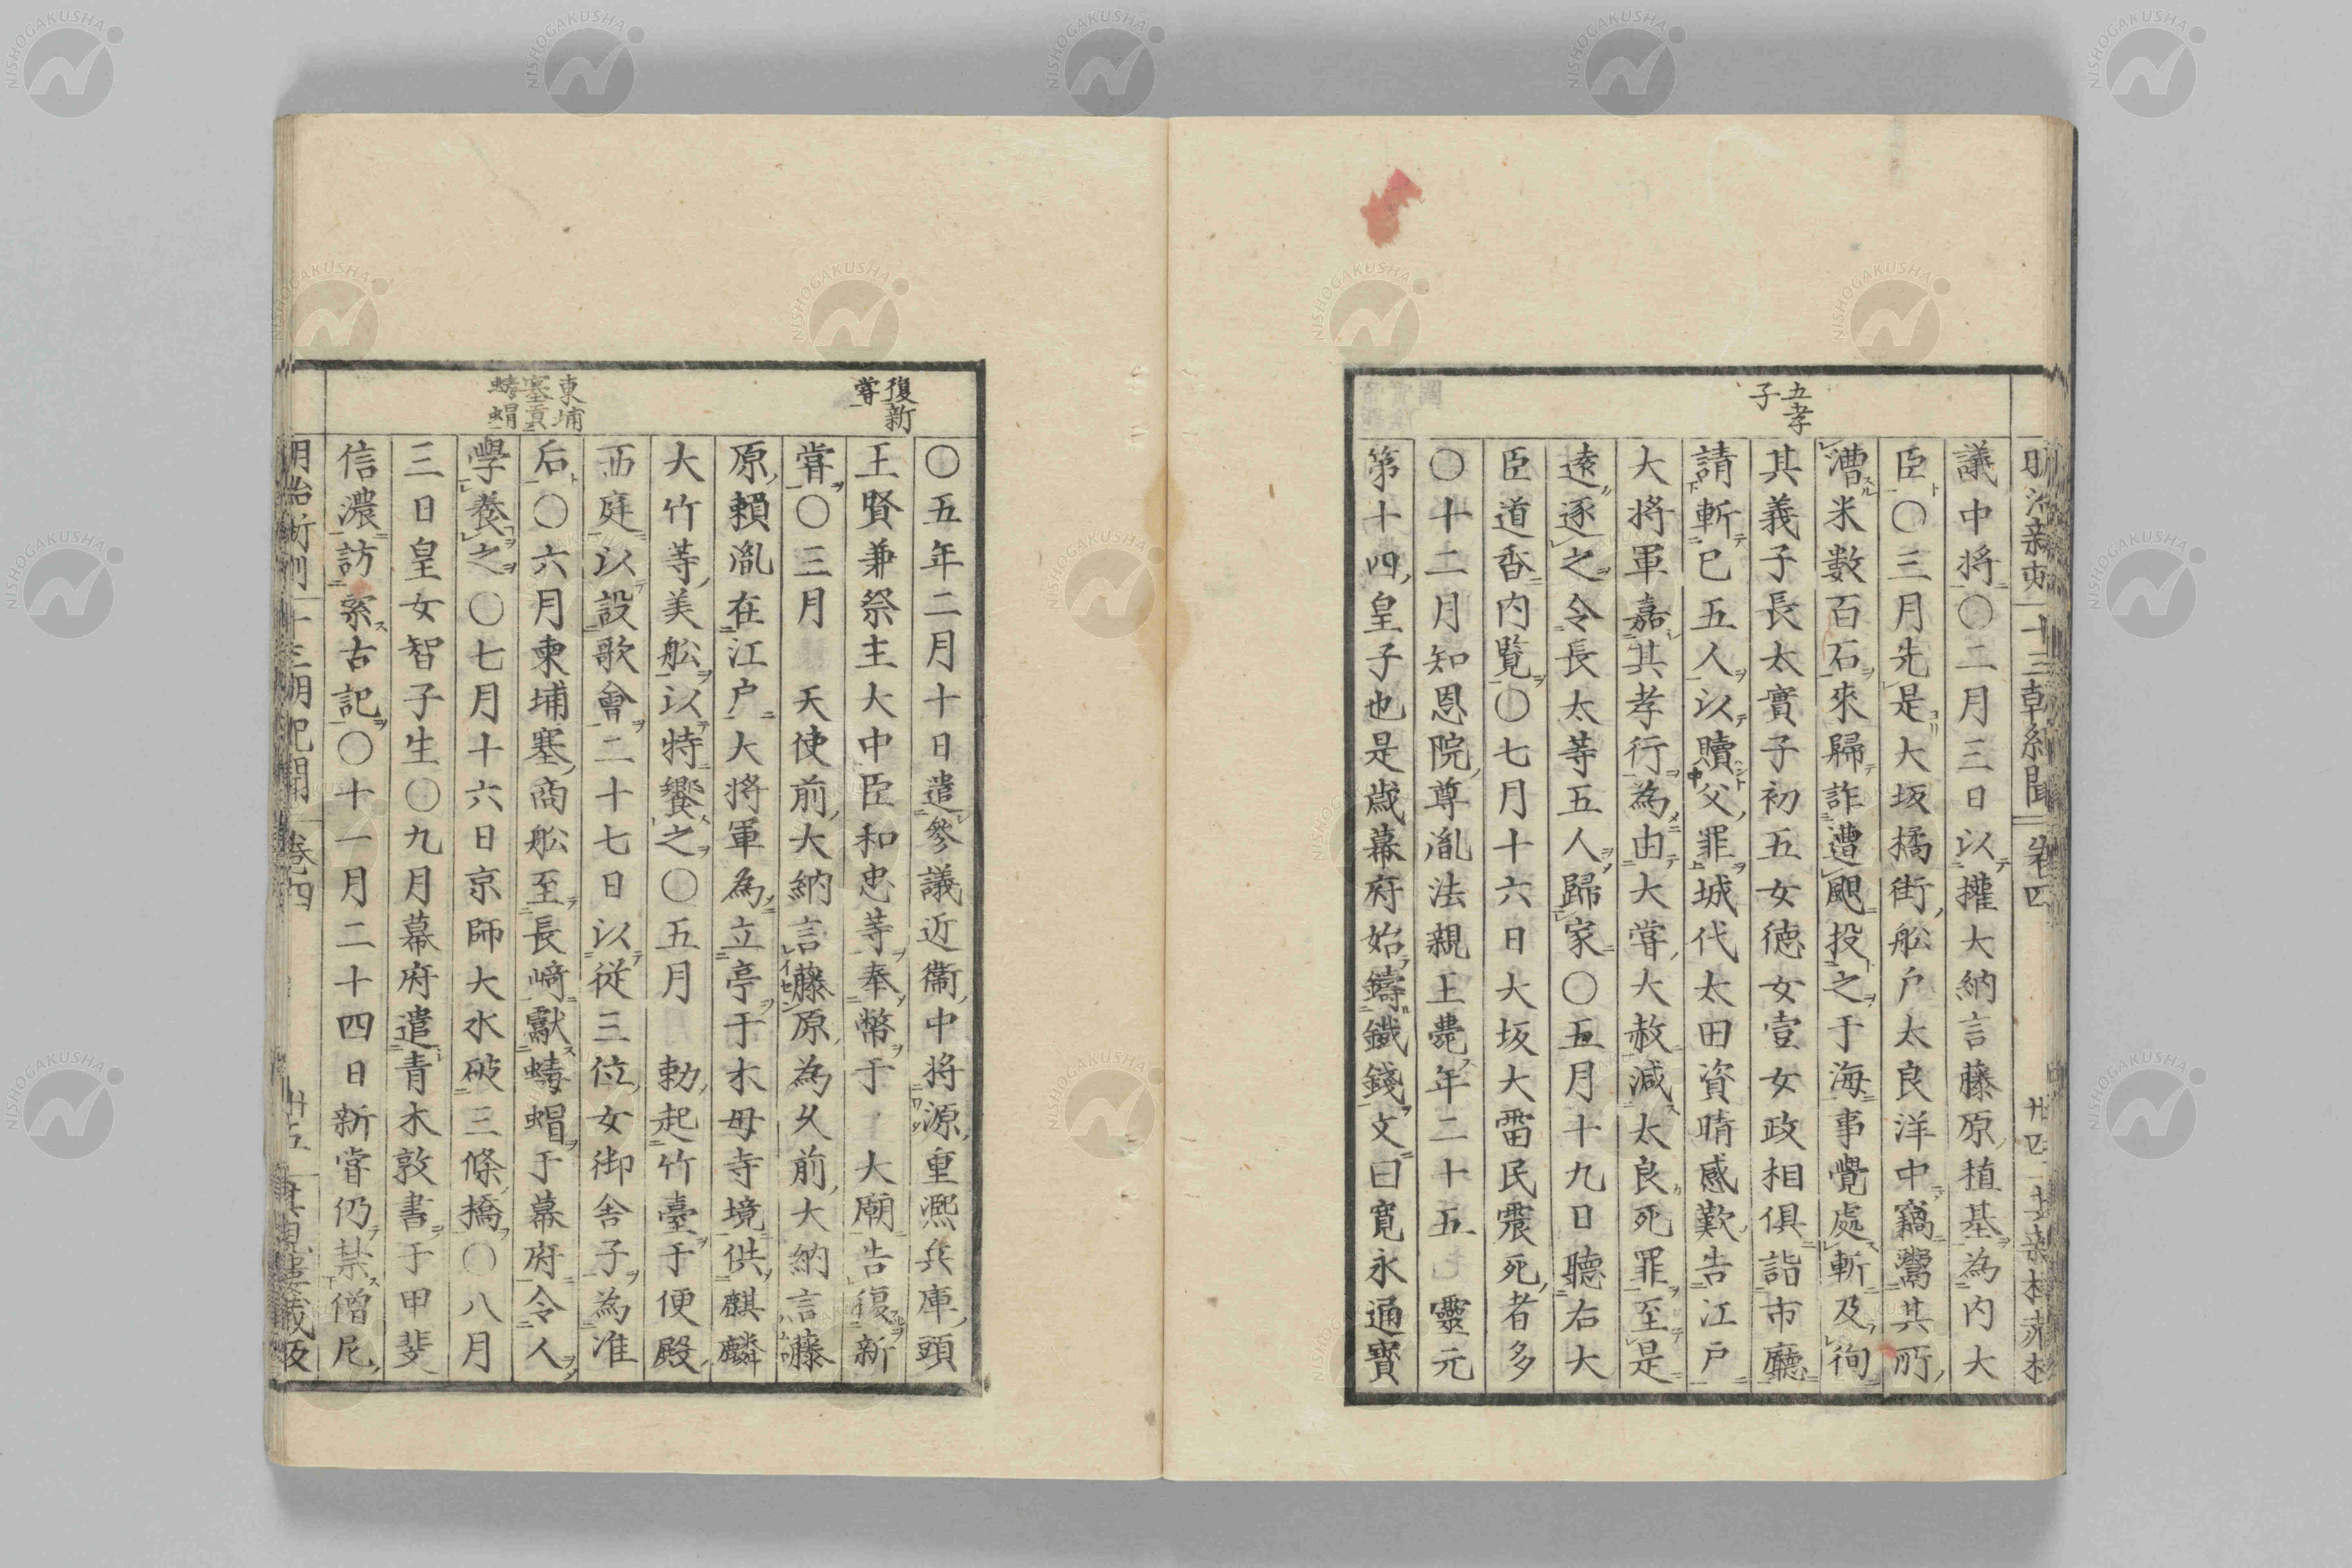 五孝
子
議中將〇二月三日以權大納言藤原植基為内大
臣〇三月先是大坂橘街舩户太良洋中竊鬻其所
漕米數百石來歸詐遭颶投之于海事覺處斬及徇
其義子長太實子初五女徳女壹女政相俱詣市廳
請斬已五人以贖父罪城代太田資晴感歎告江戸
大將軍嘉其孝行為由大甞大赦減太良死罪至是
遠逐之令長太等五人歸家〇五月十九日聽右大
臣道香内覧〇七月十六日大坂大雷民震死者多
〇十二月知恩院尊胤法親王薨年二十五 靈元
第十四皇子也是歳幕府始鑄鐵錢文曰寛永通寳
復新
甞
東埔
塞貢
蜻蜎
〇五年二月十日遣參議近衞中將源重熈兵庫頭
王賢兼祭主大中臣和忠等奉幣于 大廟告復新
甞〇三月 天使前大納言藤原為久前大納言藤
原賴胤在江户大將軍為立亭于木母寺境供麒麟
大竹等美舩以特饗之〇五月 勅起竹臺于便殿
西庭以設歌會二十七日以從三位女御舎子為准
后〇六月東埔塞商舩至長﨑獻蜻蜎于幕府令人
學養之〇七月十六日京師大水破三條橋〇八月
三日皇女智子生〇九月幕府遣青木敦書于甲斐
信濃訪索古記〇十一月二十四日新甞仍禁僧尼
卷四
廿五